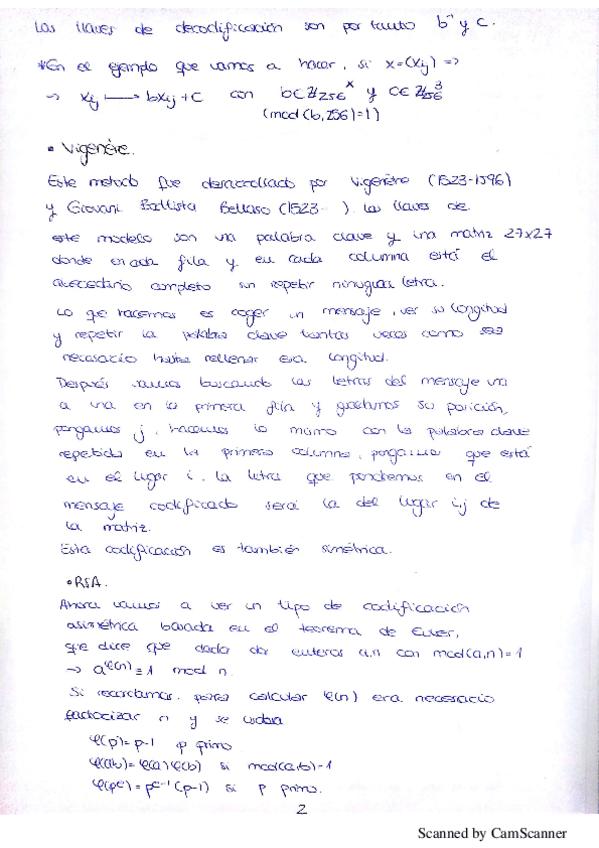 Las llaves de decodificación son por tanto b⁻¹ y c.
*En el ejemplo que vamos a hacer, si x=(xij) =>
→ xij ⟼ bxij+c con b∈ℤ256^x y c∈ℤ256^3
(mcd(b,256)=1)
• Vigenère.
Este método fue desarrollado por Vigenère (1523-1596)
y Giovani Battista Bellaso (1523- ). Las llaves de
este modelo son una palabra clave y una matriz 27x27
donde en cada fila y en cada columna está el
abecedario completo sin repetir ninguna letra.
Lo que hacemos es coger un mensaje, ver su longitud
y repetir la palabra clave tantas veces como sea
necesario hasta rellenar esa longitud.
Después vamos buscando las letras del mensaje una
a una en la primera fila y guardamos su posición,
pongamos j, hacemos lo mismo con la palabra clave
repetida en la primera columna, pongamos que está
en el lugar i. La letra que pondremos en el
mensaje codificado será la del lugar i,j de
la matriz.
Esta codificación es también simétrica.
• RSA.
Ahora vamos a ver un tipo de codificación
asimétrica basada en el teorema de Euler,
que dice que dado dos enteros a,n con mcd(a,n)=1
→ a^φ(n) ≡ 1 mod n.
Si recordamos, para calcular φ(n) era necesario
factorizar n y se usaba
φ(p)=p-1 p primo
φ(ab)=φ(a)φ(b) si mcd(a,b)=1
φ(p^e)=p^e-1(p-1) si p primo.
2
Scanned by CamScanner